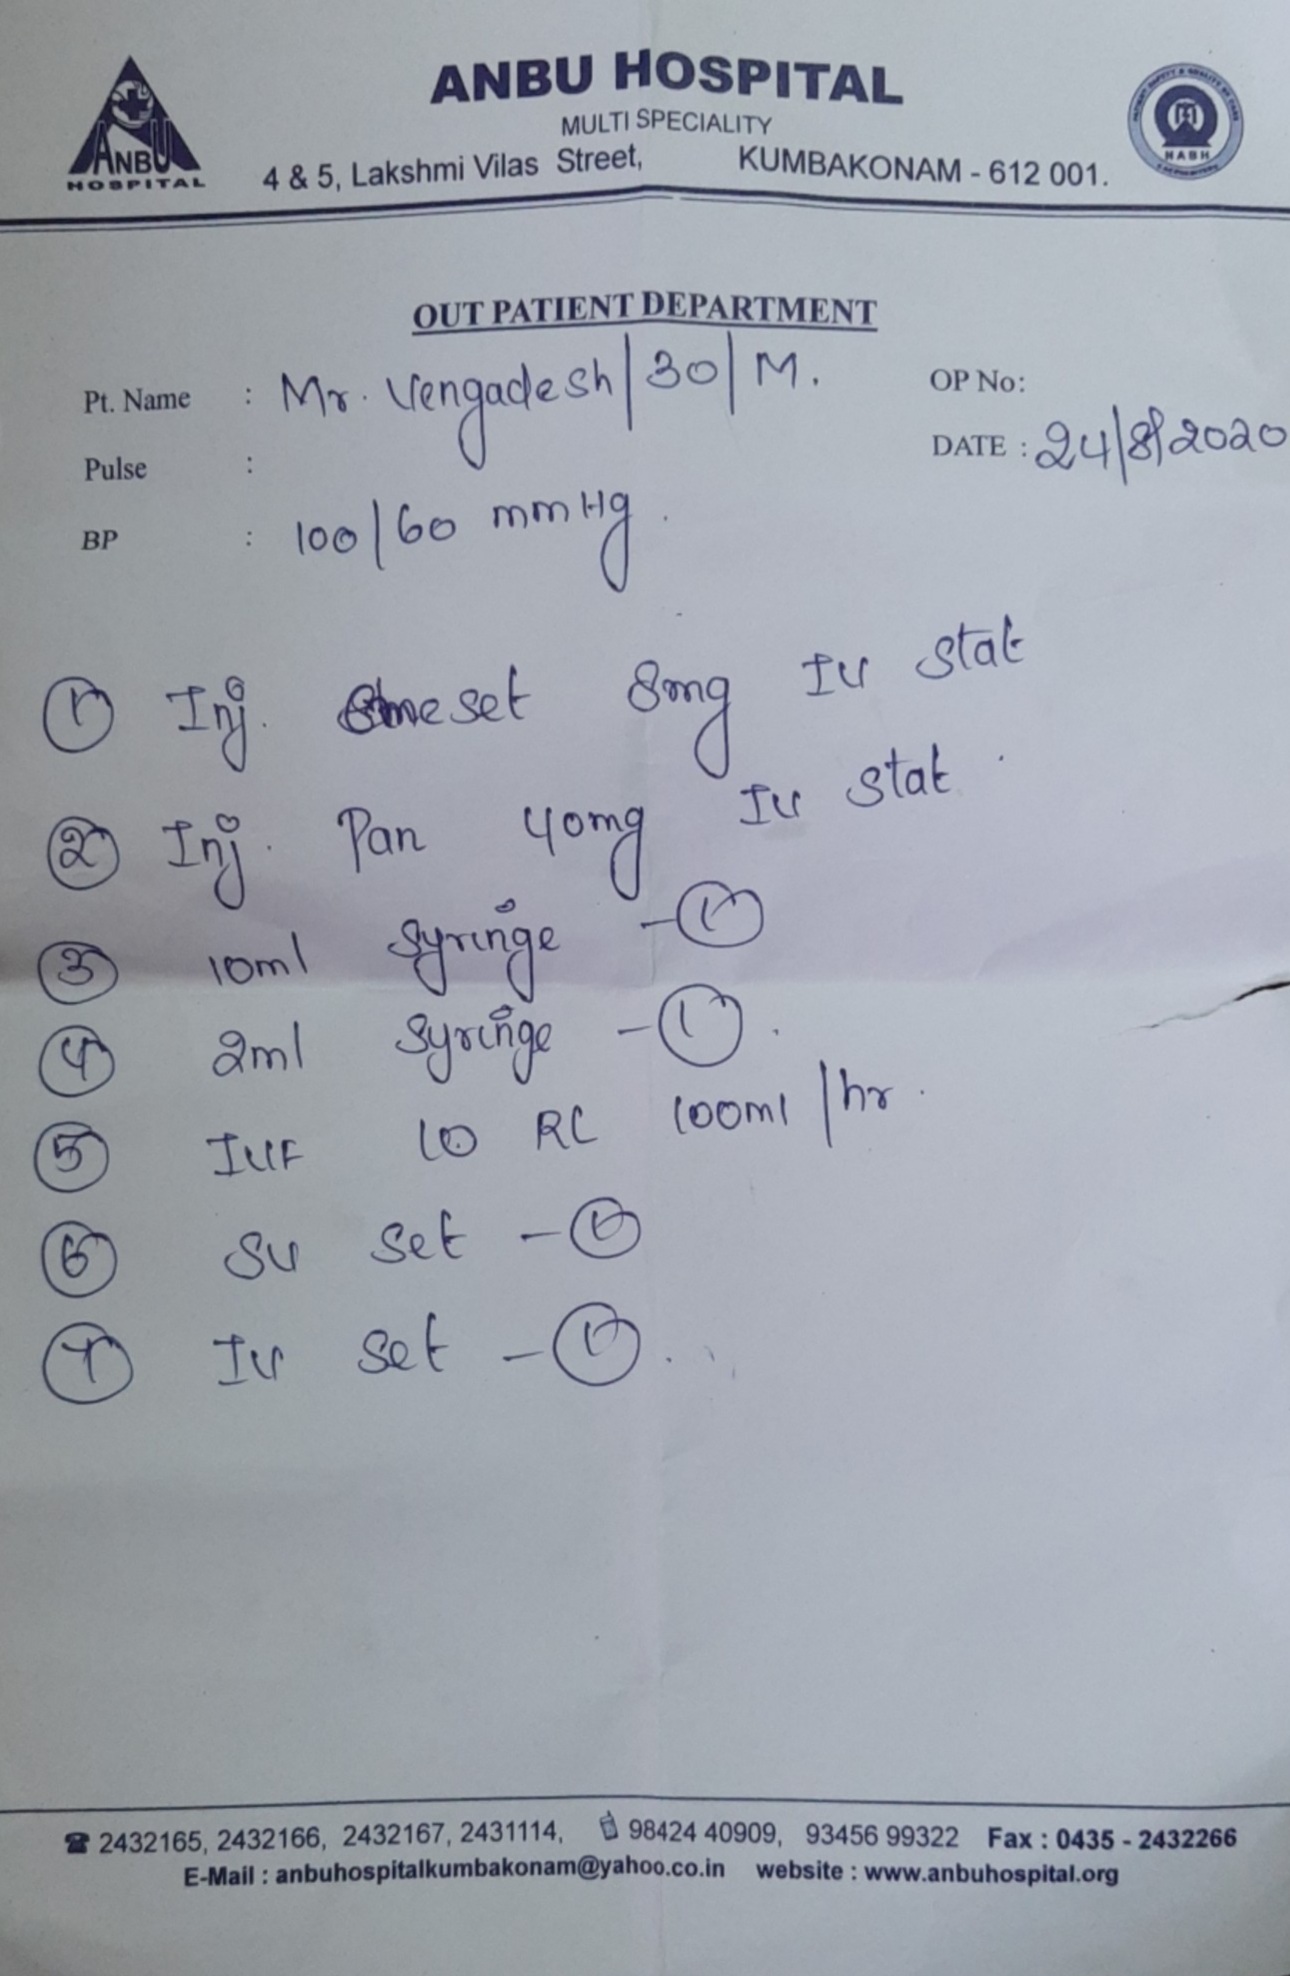 ANBU HOSPITAL
ANBU
HOSPITAL
MULTI SPECIALITY
4 & 5, Lakshmi Vilas Street, KUMBAKONAM - 612 001.
NABH
OUT PATIENT DEPARTMENT
Pt. Name : Mr. Vengadesh/30/M. OP No:
DATE : 24/8/2020
Pulse :
BP : 100/60 mmHg.
① Inj. Emeset 8mg IV stat
② Inj. Pan 40mg IV stat.
③ 10ml Syringe - ①
④ 2ml Syringe - ①.
⑤ IVF RL 100ml/hr.
⑥ SV set - ①
⑦ IV set - ①.
2432165, 2432166, 2432167, 2431114, 98424 40909, 93456 99322 Fax : 0435 - 2432266
E-Mail : anbuhospitalkumbakonam@yahoo.co.in website : www.anbuhospital.org